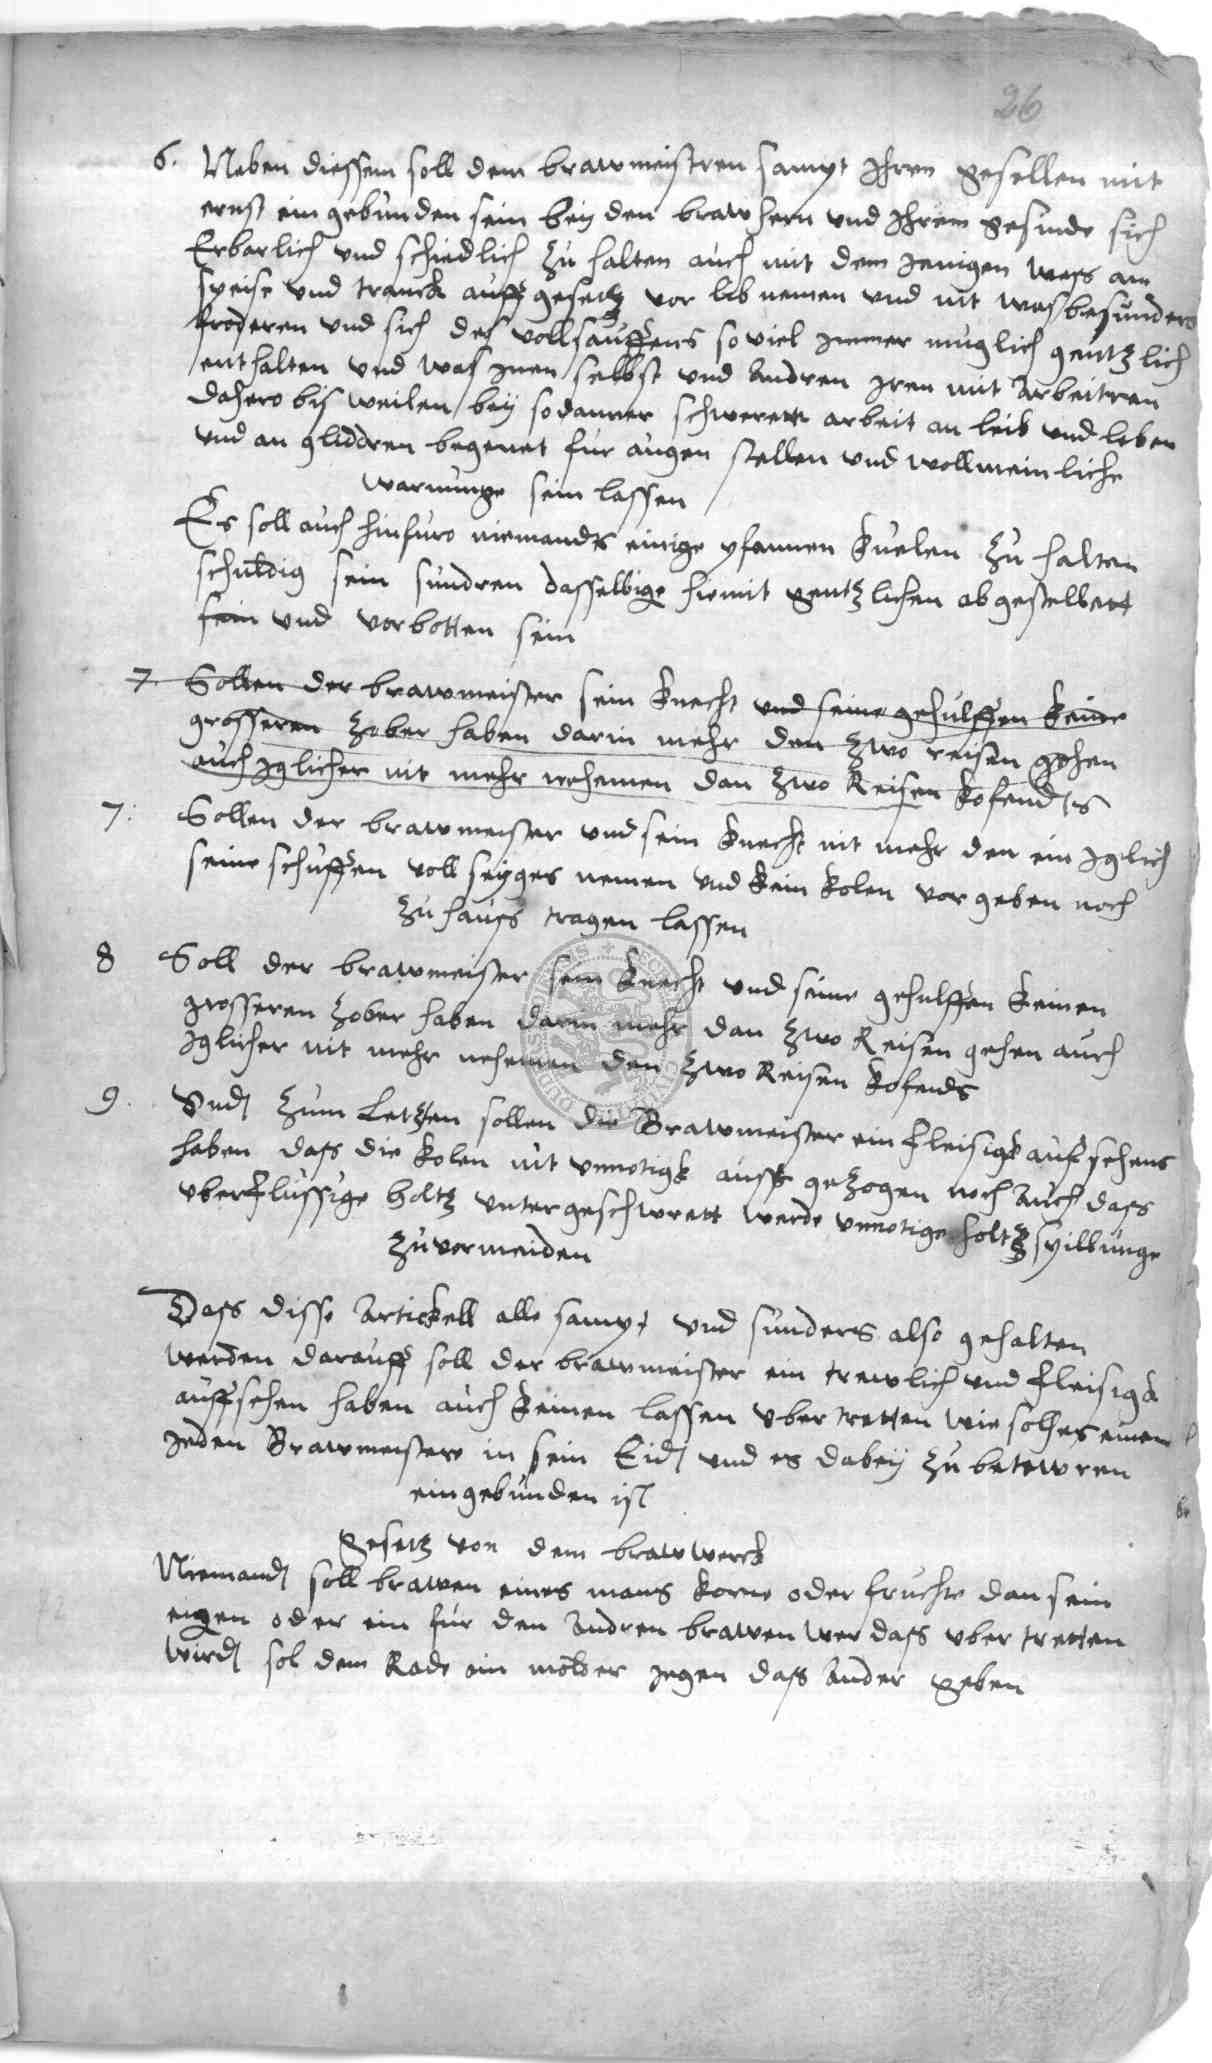 26
6. Neben diessem soll dem brawmeistren sampt Ihren gesellen mit
ernst eingebunden sein bey den brawhern und Ihrem gesinde sich
Erbarlich und schiedlich zu halten auch mit dem Jenigen wass an
speise und tranck auffgesetz vor lib nemen und nit was besunders
froderen und sich des vollsauffens so viel immer muglich gentzlich
enthalten und was Inen selbst und Andren Iren mit Arbeitren
dahero bis weilen bey sodanner schwerett arbeit an leib und leben
und an gliddren begenet fur augen stellen und wollmeinliche
warnunge sein lassen
Es soll auch hinfuro niemandts einige pfannen kuelen zu halten
schuldig sein sundren dasselbige hirmit gentzlichen abgestellett
sein und vorbotten sein
7. Sollen der brawmeister sein knecht und seine gehulffen keine
grosseren zober haben darin mehr den zwo reisen gehen
auch Iglicher nit mehr nehemen dan zwo Reisen kofendts
7: Sollen der brawmeister und sein knecht nit mehr den ein Iglich
seine schuffen voll seyges nemen und kein kolen vorgeben noch
zu hauss tragen lassen
8 Soll der brawmeister sein knecht und seine gehulffen keinen
grosseren zober haben darin mehr dan zwo Reisen gehen auch
Iglicher nit mehr nehemen den zwo Reisen kofends
9. Und zum Letzten sollen die Brawmeister ein fleisigk aufsehens
haben dass die kolen nit unnotigk auss gezogen noch Auch dass
uberflussige holtz untergeschwrett werde unnotige holtz spillunge
zu vormeiden
Dass disse Artickell alle sampt und sunders also gehalten
werden darauff soll der brawmeister ein trewlich und fleisigk
auffsehen haben auch keinen lassen ubertretten wie solhes einem
Jeden Brawmeistere in sein Eid und es dabey zu betewren
eingebunden ist
gesetz von dem brawwerck
Niemand soll brawen eines mans korne oder fruchte dan sein
eigen oder ein fur den Andren brawen wer dass uber tretten
wird sol dem Rade ein molder jegen dass Ander geben